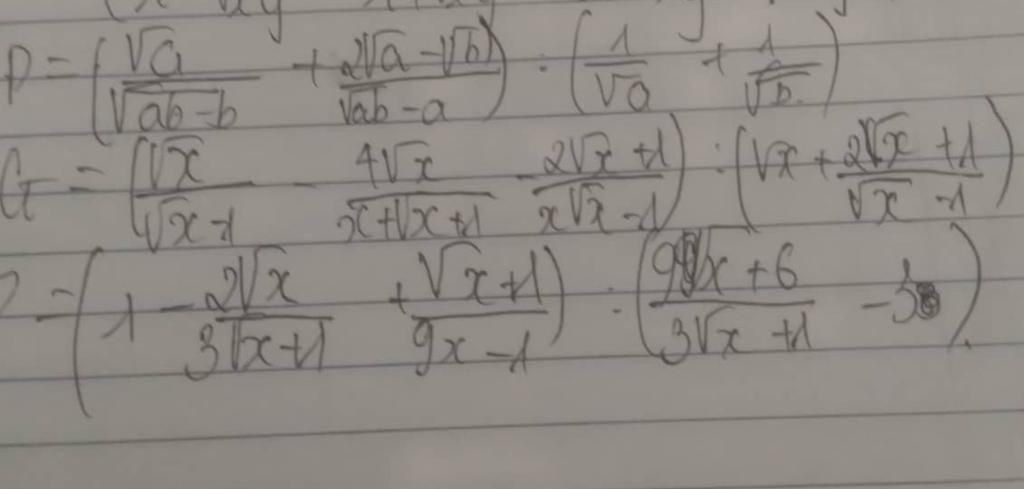 P = (√a/(√ab-b) + (2√a-√b)/(√ab-a)) : (1/√a + 1/√b)
G = (√x/(√x-1) - 4√x/(x+√x+1) - (2√x+1)/(x√x-1)) : (√x + (2√x+1)/(√x-1))
= (1 - 2√x/(3√x+1) + (√x+1)/(9x-1)) : ((9√x+6)/(3√x+1) - 3)